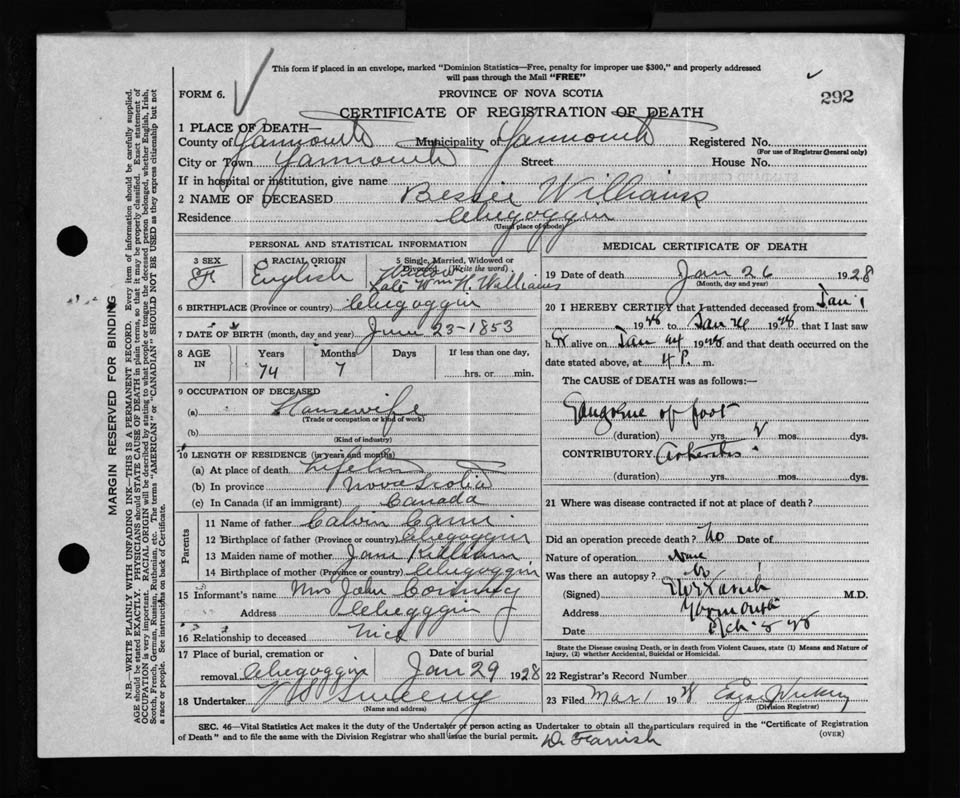 This form if placed in an envelope, marked "Dominion Statistics—Free, penalty for improper use $300," and properly addressed
will pass through the Mail "FREE"
FORM 6.
PROVINCE OF NOVA SCOTIA
292
CERTIFICATE OF REGISTRATION OF DEATH
1 PLACE OF DEATH—
County of Yarmouth Municipality of Yarmouth Registered No.
(For use of Registrar General only)
City or Town Yarmouth Street House No.
If in hospital or institution, give name
2 NAME OF DECEASED Bessie Williams
Residence Chegoggin
(Usual place of abode)
PERSONAL AND STATISTICAL INFORMATION
3 SEX F. 4 RACIAL ORIGIN English 5 Single, Married, Widowed or Divorced (Write the word) Widow
Late Wm H. Williams
6 BIRTHPLACE (Province or country) Chegoggin
7 DATE OF BIRTH (month, day and year) June 23-1853
8 AGE IN Years 74 Months 7 Days If less than one day, hrs. or min.
9 OCCUPATION OF DECEASED
(a) Housewife
(Trade or occupation or kind of work)
(b)
(Kind of industry)
10 LENGTH OF RESIDENCE (in years and months)
(a) At place of death Lifetime
(b) In province Nova Scotia
(c) In Canada (if an immigrant) Canada
Parents
11 Name of father Calvin Cann
12 Birthplace of father (Province or country) Chegoggin
13 Maiden name of mother Jane Killam
14 Birthplace of mother (Province or country) Chegoggin
15 Informant's name Mrs John Corning
Address Chegoggin
16 Relationship to deceased Niece
17 Place of burial, cremation or removal Chegoggin Date of burial Jan 29 1928
18 Undertaker V S Sweeny
(Name and address)
MEDICAL CERTIFICATE OF DEATH
19 Date of death Jan 26 1928
(Month, day and year)
20 I HEREBY CERTIFY that I attended deceased from Jan 1
1928 to Jan 26 1928 that I last saw
her alive on Jan 24 1928 and that death occurred on the
date stated above, at 4 P. m.
The CAUSE of DEATH was as follows:—
Gangrene of foot
(duration) yrs. mos. dys.
CONTRIBUTORY
(duration) yrs. mos. dys.
21 Where was disease contracted if not at place of death?
Did an operation precede death? No Date of
Nature of operation None
Was there an autopsy? No
(Signed) M.D.
Address Yarmouth
Date
State the Disease causing Death, or in death from Violent Causes, state (1) Means and Nature of
Injury, (2) whether Accidental, Suicidal or Homicidal.
22 Registrar's Record Number
23 Filed Mar 1 1928
(Division Registrar)
SEC. 46—Vital Statistics Act makes it the duty of the Undertaker or person acting as Undertaker to obtain all the particulars required in the "Certificate of Registration
of Death" and to file the same with the Division Registrar who shall issue the burial permit.
(OVER)
Dr Farish
MARGIN RESERVED FOR BINDING
N.B.—WRITE PLAINLY WITH UNFADING INK—THIS IS A PERMANENT RECORD. Every item of information should be carefully supplied.
AGE should be stated EXACTLY. PHYSICIANS should STATE CAUSE OF DEATH in plain terms, so that it may be properly classified. Exact statement of
OCCUPATION is very important. RACIAL ORIGIN will be described by stating to what people or tongue the deceased person belonged, whether English, Irish,
Scotch, French, German, Russian, Ruthenian, etc. The terms "AMERICAN" or "CANADIAN" SHOULD NOT BE USED as they express citizenship but not
a race or people. See instructions on back of Certificate.